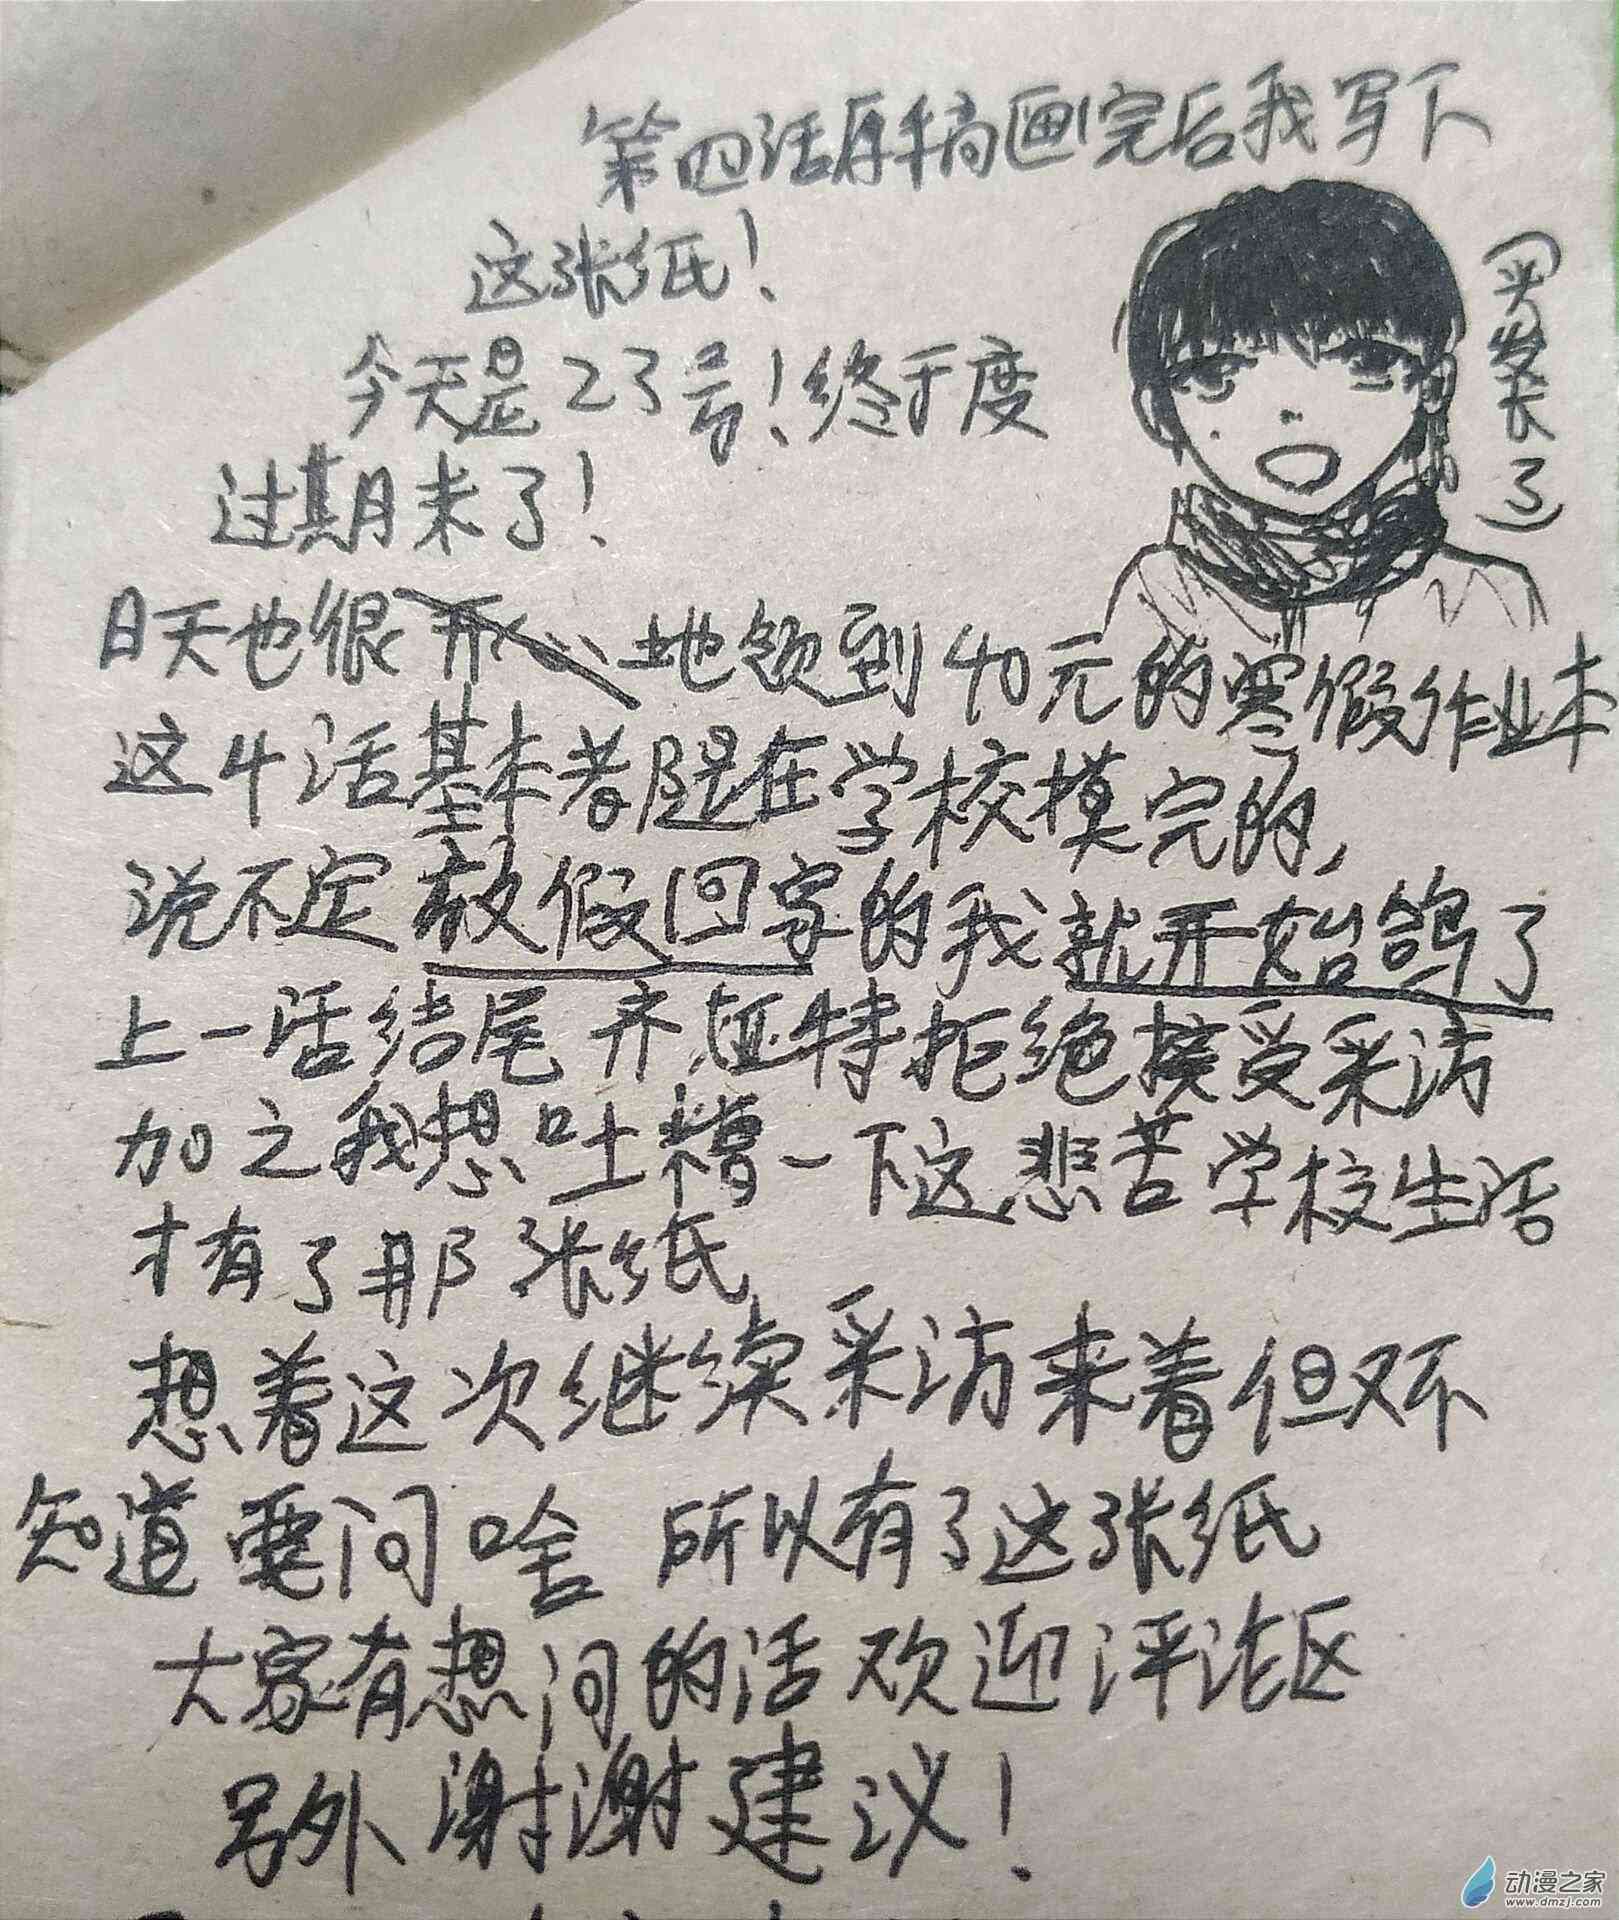 第四话原稿画完后我写下
这张纸！
(头发长了)
今天是23号！终于度
过期末了！
日天也很开心地领到40元的寒假作业本
这4话基本都是在学校摸完的，
说不定放假回家的我就开始鸽了
上一话结尾齐娅特拒绝接受采访
加之我想吐槽一下这悲苦学校生活
才有了那张纸
想着这次继续采访来着但又不
知道要问啥 所以有了这张纸
大家有想问的话欢迎评论区
另外谢谢建议！
动漫之家
www.dmzj.com